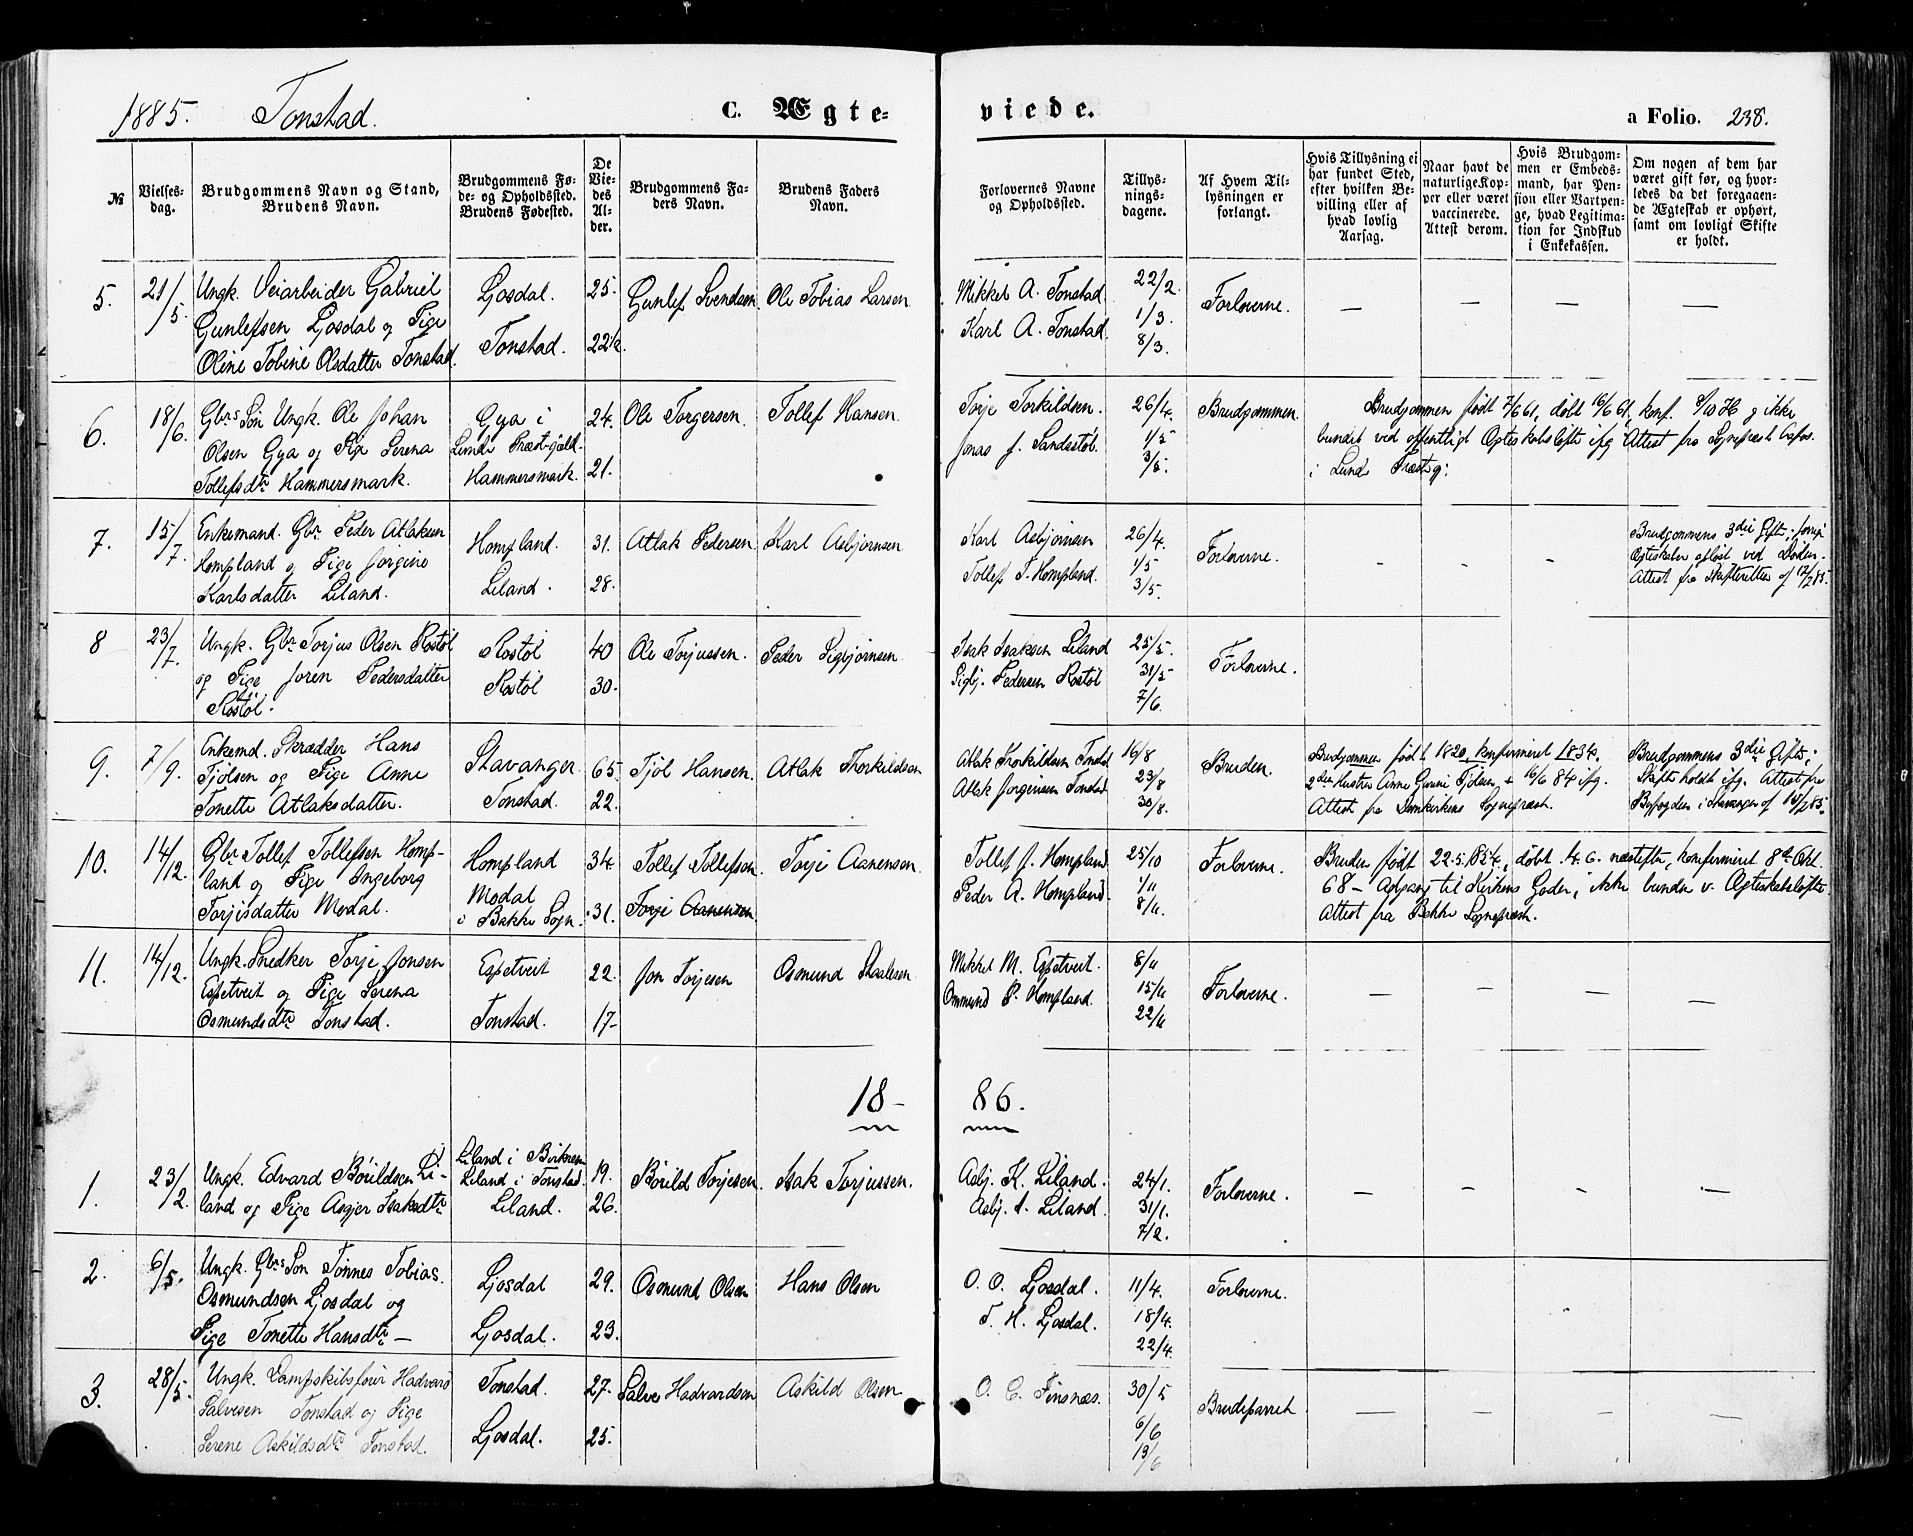 1885. Tonstad.
C. Ægte-
viede.
a Folio. 238.
№
Vielses-
dag.
Brudgommens Navn og Stand,
Brudens Navn.
Brudgommens Fø-
de- og Opholdssted.
Brudens Fødested.
De
Vie-
des
Al-
der.
Brudgommens Fa-
ders Navn.
Brudens Faders
Navn.
Forlovernes Navne
og Opholdssted.
Tillys-
nings-
dagene.
Af Hvem Til-
lysningen er
forlangt.
Hvis Tillysning ei
har fundet Sted,
efter hvilken Be-
villing eller af
hvad lovlig
Aarsag.
Naar havt de
naturlige Kop-
per eller været
vaccinerede.
Attest derom.
Hvis Brudgom-
men er Embeds-
mand, har Pen-
sion eller Vartpen-
ge, hvad Legitima-
tion for Indskud
i Enkekassen.
Om nogen af dem har
været gift før, og hvor-
ledes da det foregaaen-
de Ægteskab er ophørt,
samt om lovligt Skifte
er holdt.
5. 21/5. Ungk. Veiarbeider Gabriel
Gunlefsen Ljosdal og Pige
Oline Tobine Olsdatter Tonstad.
Ljosdal. 25.
Tonstad. 22½.
Gunlef Svendsen Ole Tobias Larsen
Mikkel A. Tonstad.
Karl A. Tonstad.
22/2.
1/3.
8/3.
Forloverne. — — — —
6. 18/6. Gbrs Søn Ungk. Ole Johan
Olsen Gya og Pige Serena
Tollefsdtr Hammersmark.
Gya i
Lunde Præstgjæld. 24.
Hammersmark. 21.
Ole Torgersen. Tollef Hansen.
Torje Torkildsen.
Jonas J. Sandsstøl.
26/4.
1/5
3/5.
Brudgommen.
Brudgommen født 7/6 61, døbt 16/6 61, konf. og ikke
bundet ved offentligt Ægteskabsløfte ifg. Attest fra Sognepræst
i Lund Præstg:
7. 15/7. Enkemand. Gbr. Peder Atlaksen
Hompland og Pige Jørgine
Karlsdatter Liland.
Hompland. 31.
Liland. 28.
Atlak Pedersen Karl Asbjørnsen
Karl Asbjørnsen
Tollef T. Hompland.
26/4.
1/5
3/5.
Forloverne. - - -
Brudgommens 3die Gifte;
Ægteskaber opløst ved Døden.
Attest fra Skifteretten af 12/7 85.
8 23/7. Ungk. Gbr. Torjus Olsen Rostøl
og Pige Joren Pedersdatter
Rostøl.
Rostøl 40
Rostøl 30.
Ole Torjussen. Peder Sigbjørnsen
Isak Isaksen Liland
Sigbj. Pedersen Rostøl
25/5.
31/5
7/6.
Forloverne.
9. 7/9. Enkemd. Skrædder Hans
Tjølsen og Pige Anne
Tonette Atlaksdatter.
Stavanger 65.
Tonstad. 22.
Tjøl Hansen. Atlak Thorkildsen
Atlak Thorkildsen Tonstad
Atlak Jørgensen Tonstad
16/8
23/8
30/8.
Bruden.
Brudgommen født 1820, konfirmeret 1834.
2den Hustru Anne Tjølsen + 16/6 84 ifg.
Attest fra Domkirkens Sognepræst.
Brudgommens 3die Gifte;
Skifte holdt ifg. Attest fra
Byfogden i Stavanger af
10. 14/12. Gbr. Tollef Tollefsen Homp-
land og Pige Ingeborg
Torjisdatter Modal.
Hompland 34.
Modal
i Bakke Sogn. 31.
Tollef Tollefsen. Torje Aanensen
Torje Aanensen
Tollef J. Hompland.
Peder A. Hompland.
25/10
1/11
8/11.
Forloverne.
Bruden født 22.5.1854, døbt 4. 6. næstefter, konfirmeret 8de Okt.
68 – Adgang til Kirkens Goder, ikke bunden v. Ægteskabsløfte
Attest fra Bakke Sognepræst.
11. 14/12. Ungk. Snedker Torje Jonsen
Espetveit og Pige Serena
Osmundsdtr Tonstad.
Espetveit 22.
Tonstad. 17-
Jon Torjesen Osmund Staalesen
Mikkel M. Espetveit.
Ommund P. Hompland.
8/11
15/11
22/11
Forloverne. — — — —
18-86.
1. 23/2. Ungk. Edvard Børildsen Li-
land og Pige Asgjer Isaksdtr
Liland i
Liland i Tonstad. 19.
Liland. 26.
Børild Torjesen. Isak Torjussen.
Asbj. K. Liland.
Asbj. A. Liland.
24/1.
31/1.
7/2.
Forloverne. — - - —
2. 6/5. Ungk. Gbrs Søn Tønnes Tobias.
Osmundsen Ljosdal og
Pige Tonette Hansdtr —
Ljosdal 29.
Ljosdal. 23.
Osmund Olsen Hans Olsen
O. O. Ljosdal.
T. H. Ljosdal.
11/4.
18/4.
22/4.
Forloverne.
3. 28/5. Ungk. Dampskibsfører Hadvard
Salvesen Tonstad og Pige
Serene Askildsdtr Tonstad.
Tonstad. 27.
Ljosdal. 25.
Salve Hadvardsen Askild Olsen
O. C. Finsnæs.
30/5
6/6
13/6
Brudeparret — — — —